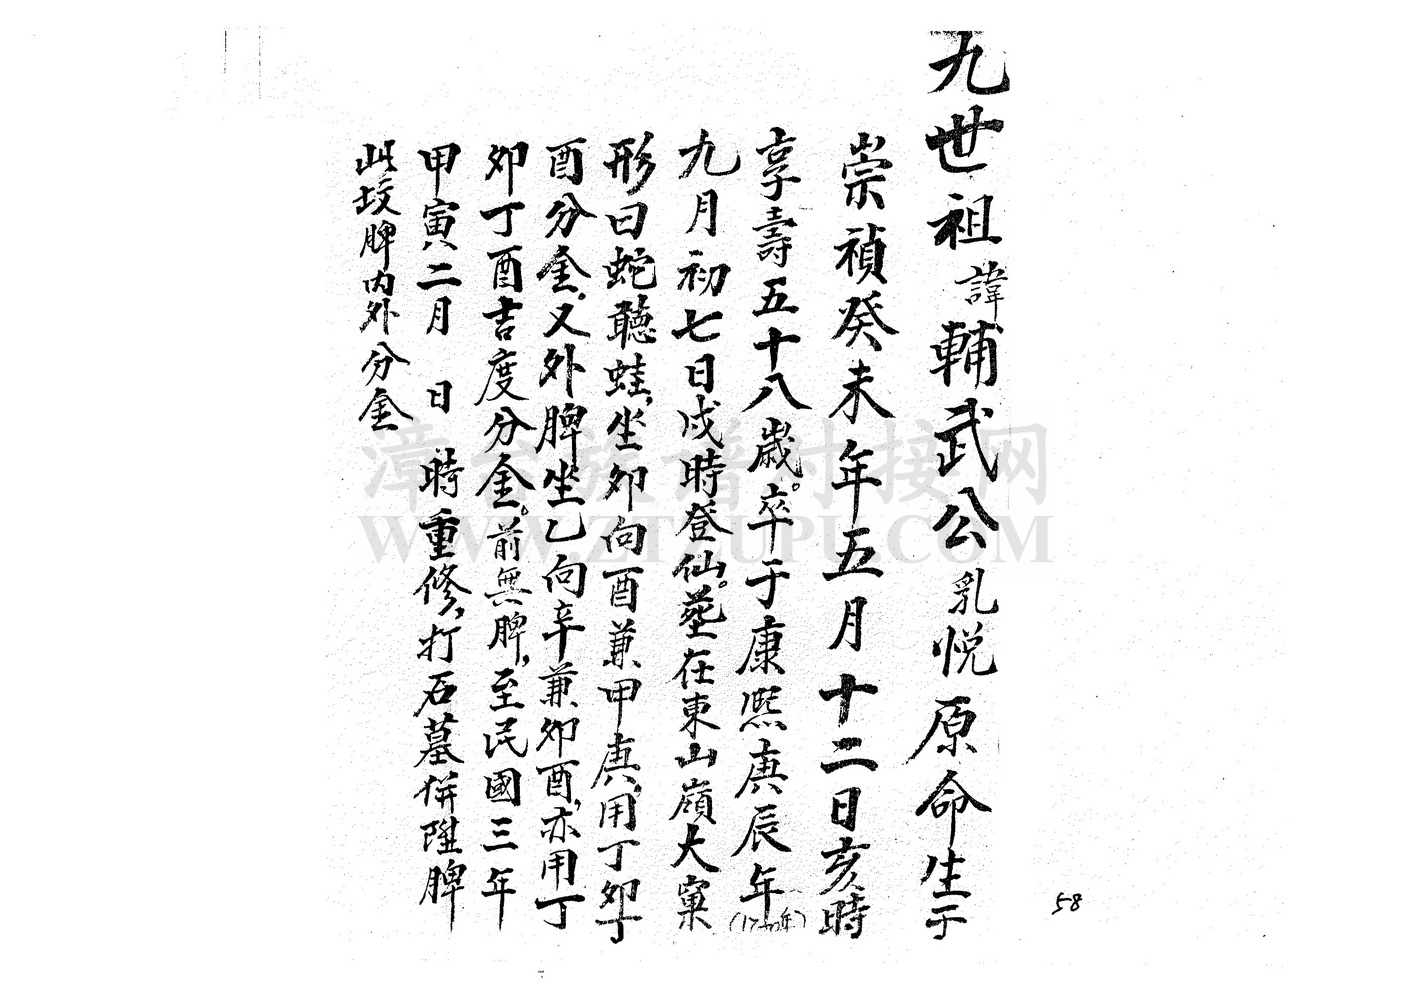 九世祖諱輔武公乳悅原命生于
崇禎癸未年五月十二日亥時
享壽五十八歲。卒于康熙庚辰年(1700年)
九月初七日戌時登仙。塟在東山嶺大窠
形曰蛇聽蛙,坐卯向酉兼甲庚,用丁卯丁
酉分金,又外脾坐乙向辛兼卯酉,亦用丁
卯丁酉吉度分金。前無脾,至民國三年
甲寅二月 日 時重修,打石墓併陞脾
此坟脾内外分金
58
漳台族谱对接网
WWW.ZTZUPU.COM